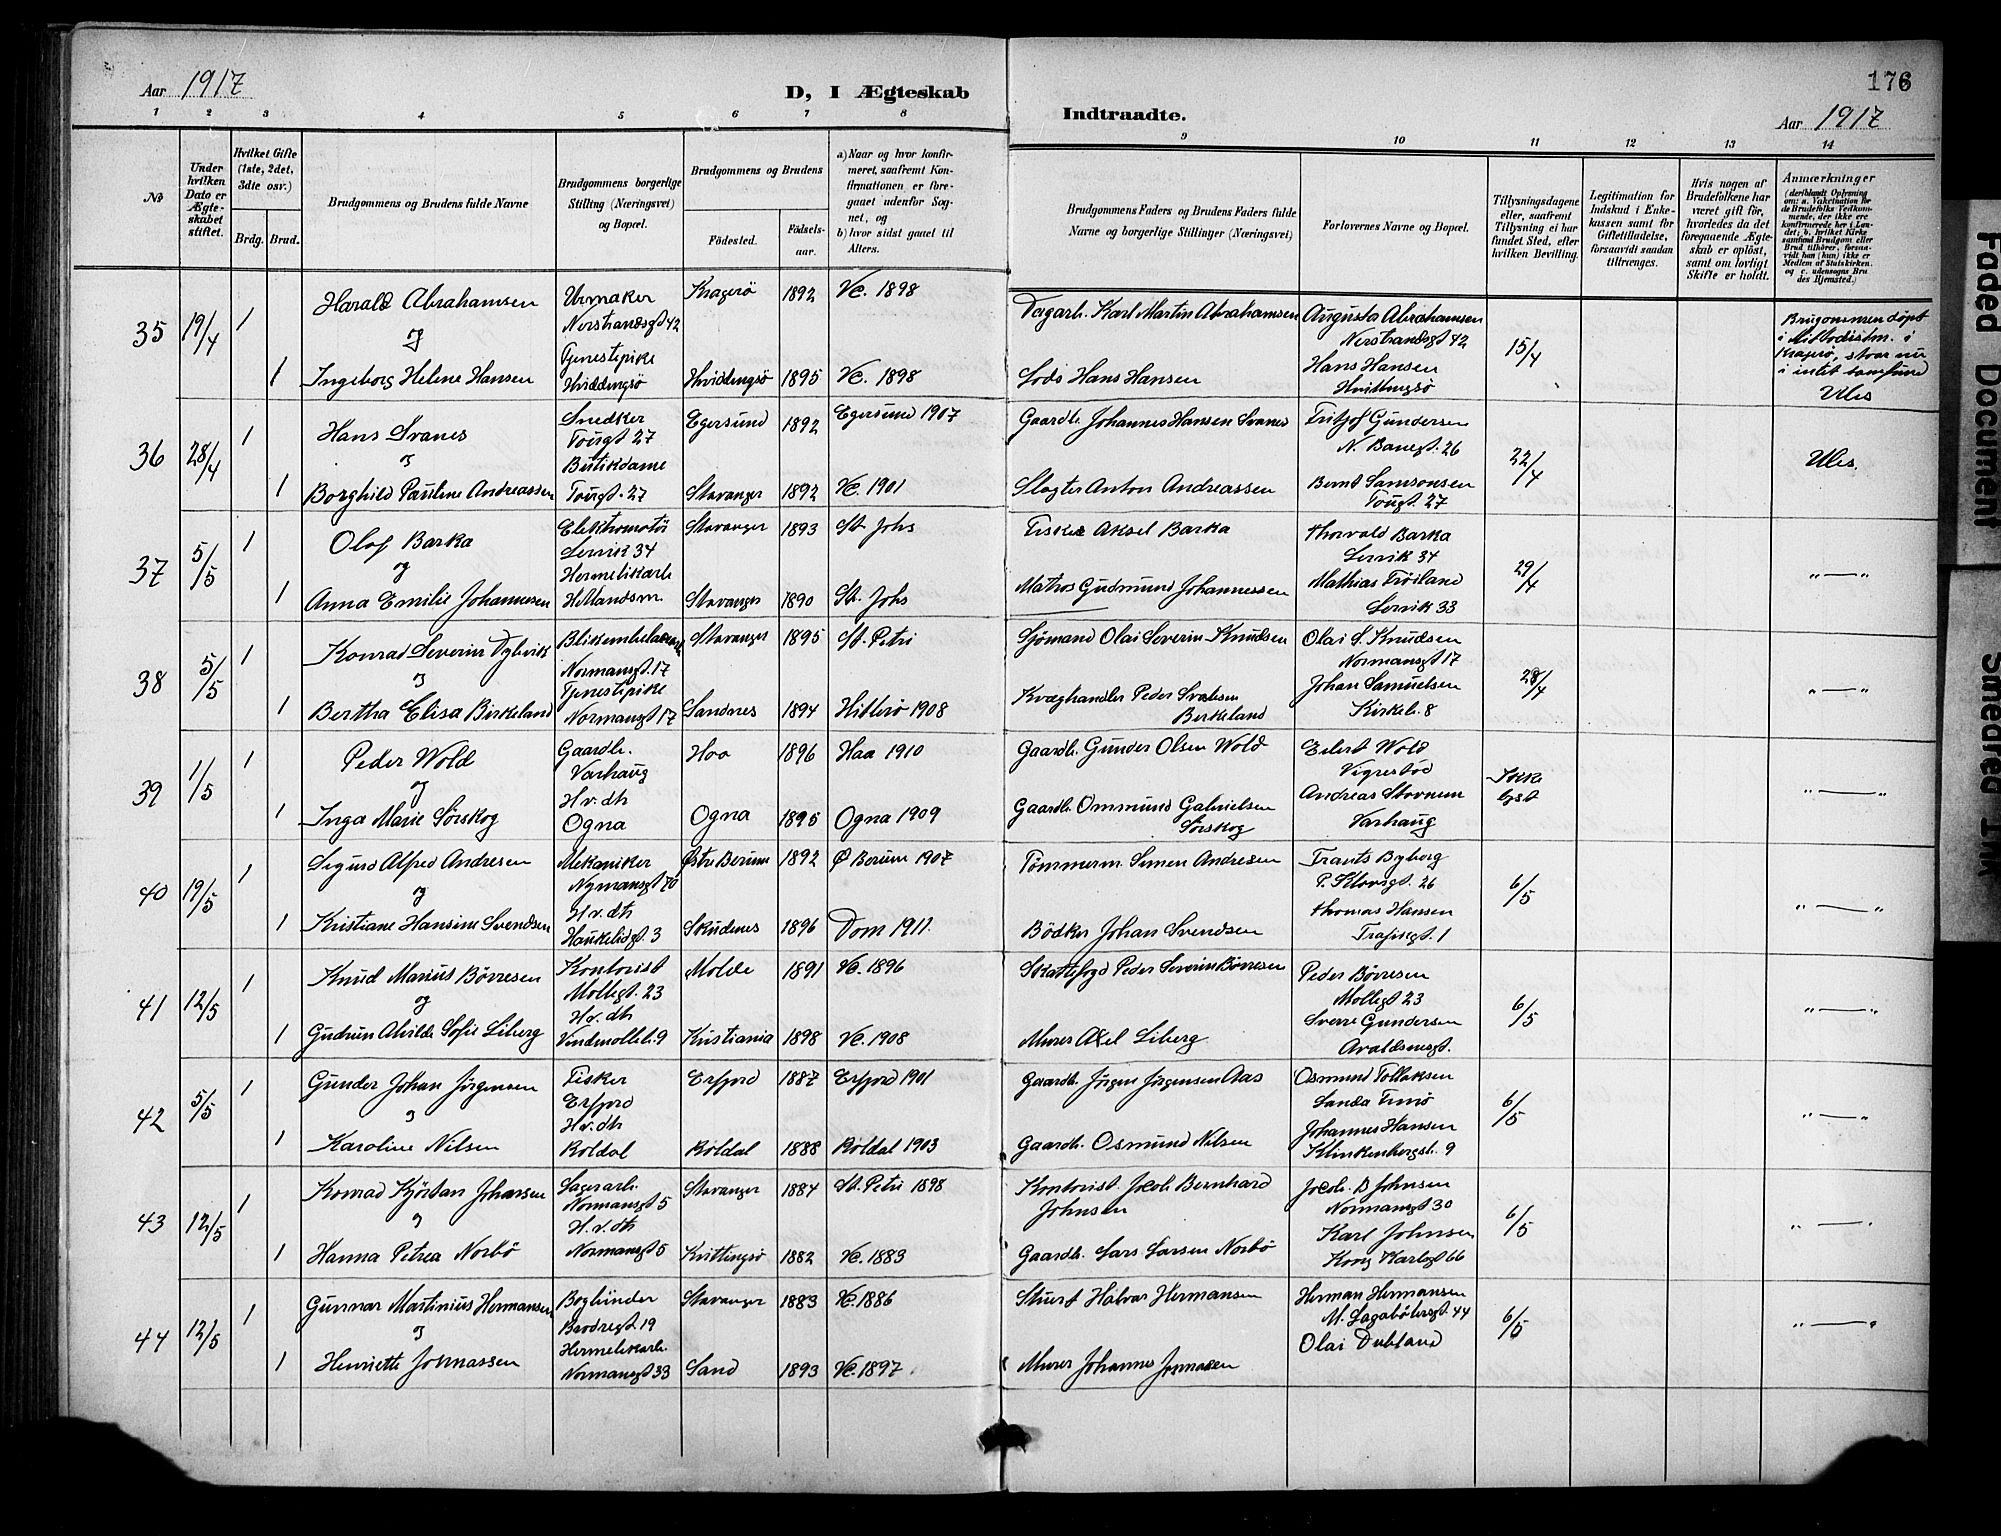 176
Aar 1917
D, I Ægteskab
Indtraadte.
Aar 1917
1 2 3 4 5 6 7 8 9 10 11 12 13 14
№
Under hvilken Dato er Ægteskabet stiftet.
Hvilket Gifte (1ste, 2det, 3dte osv.)
Brdg. Brud.
Brudgommens og Brudens fulde Navne
Brudgommens borgerlige Stilling (Næringsvei) og Bopæl.
Brudgommens og Brudens
Fødested. Fødselsaar.
a) Naar og hvor konfirmeret, saafremt Konfirmationen er foregaaet udenfor Sognet, og
b) hvor sidst gaaet til Alters.
Brudgommens Faders og Brudens Faders fulde Navne og borgerlige Stillinger (Næringsvei)
Forlovernes Navne og Bopæl.
Tillysningsdagene eller, saafremt Tillysning ei har fundet Sted, efter hvilken Bevilling.
Legitimation for Indskud i Enkekassen samt for Giftetilladelse, forsaavidt saadan tiltrænges.
Hvis nogen af Brudefolkene har været gift før, hvorledes da det foregaaende Ægteskab er opløst, samt om lovligt Skifte er holdt.
Anmærkninger
(deriblandt Oplysning om: a. Vakcination for de Brudefolks Vedkommende, der ikke ere konfirmerede her i Landet; b. hvilket Kirkesamfund Brudgom eller Brud tilhører, forsaavidt han (hun) ikke er Medlem af Statskirken. og c. udensogns Brudes Hjemsted.)
35 19/4 1 Harald Abrahamsen Urmaker Nerstrandsgt 42 Kragerö 1892 Vc. 1898 Dagarb. Karl Martin Abrahamsen Augusta Abrahamsen Nerstrandsgt 42 15/4
og
1 Ingeborg Helene Hansen Tjenestepike Hviddingsö Hviddingsö 1895 Vc. 1898 Lods Hans Hansen Hans Hansen Hvittingsö
Brugommen döpt i Methodistm. i Kragerö, staar nu i intet samfund
36 28/4 1 Hans Svanes Snedker Tougt 27 Egersund 1892 Egersund 1907 Gaardb. Johannes Hansen Svanes Fritjof Gundersen N. Banegt. 26 22/4
og
1 Borghild Pauline Andreassen Butikdame Tougt. 27 Stavanger 1892 Vc 1901 Slagter Anton Andreassen Bernt Samsonsen Tougt. 27
37 5/5 1 Olaf Barka Lervik 34 Stavanger 1893 St. Johs Fisker Aksel Barka Thorvald Barka Lervik 34 29/4
og
1 Anna Emilie Johannesen Hermetikarb Stavanger 1890 St. Johs Matros Gudmund Johannessen Mathias Tröiland Lervik 33
„ — „
38 5/5 1 Konrad Severin Dybvik Normansgt. 17 Stavanger 1895 St. Petri Sjömand Olai Severin Knudsen Olai S. Knudsen Normansgt 17 28/4
og
1 Bertha Elisa Birkeland Tjenestepike Normansgt 17 Sandnes 1894 Hitterö 1908 Kvæghandler Peder Birkeland Johan Samuelsen Kirkeb. 8
„ — „
39 1/5 1 Peder Wold Gaardb. Varhaug Haa 1896 Haa 1910 Gaardb. Gunder Olsen Wold Eilert Wold Vigrestad Ikke lyst
og
1 Inga Marie Sörskog H.v. dtr Ogna Ogna 1895 Ogna 1909 Gaardb. Ommund Gabrielsen Sörskog Andreas Stornem Varhaug
„ — „
40 19/5 1 Sigurd Alfred Andresen Mekaniker Nymansgt 70 Östre Berum 1892 Ö Berum 1907 Tömmerm. Simen Andresen Frants Byberg 26 6/5
og
1 Kristiane Hansine Svendsen H.v. dtr Haukeligt. 3 Skudenes 1896 Dom 1911. Bödker Johan Svendsen Thomas Hansen
„ — „
41 12/5 1 Knud Marius Börresen Kontorist Mollegt. 23 Molde 1891 Vc. 1896 Skattefogd Peder Severin Börresen Peder Börresen Mollegt 23 6/5
og
1 Gudrun Alvilde Sofie Liberg H.v. dtr Vindmolleb. 9 Kristiania 1898 Vc. 1908 Murer Axel Liberg Sverre Gundersen Avaldsnesgt.
„ — „
42 5/5 1 Gunder Johan Jörgensen Fisker Erfjord Erfjord 1887 Erfjord 1901 Gaardb. Jörgen Jörgensen Aas Osmund Tollaksen 6/5
og
1 Karoline Nilsen H.v. dtr Röldal Röldal 1888 Röldal 1903 Gaardb. Osmund Nilsen Johannes Hansen Klinkenbergsb. 9
„ — „
43 12/5 1 Konrad Kjöstan Johnsen Lagerarb. Normansgt 5 Stavanger 1884 St. Petri 1898 Kontorist. Jacob Bernhard Johnsen Jacob. B Johnsen Normansgt 30 6/5
og
1 Hanna Petrea Norbö H.v. dtr Normansgt 5 Kvittingsö 1882 Vc. 1883 Gaardb. Lars Larsen Norbö Karl Johnsen Kong Karlsgt 66
„ — „
44 12/5 1 Gunnar Martinius Hermansen Bogbinder Bredregt. 19 Stavanger 1883 Vc. 1886 Stuert Halvar Hermansen Herman Hermansen 44 6/5
og
1 Henriette Jonnassen Hermetikarb Normansgt 33 Sand 1893 Vc. 1897 Murer Johannes Jonnassen Olai Dubland
„ — „
Faded Document
Smeared Ink